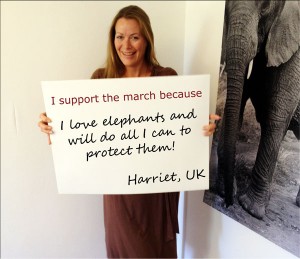 I support the march because
I love elephants and
will do all I can to
protect them!
Harriet, UK